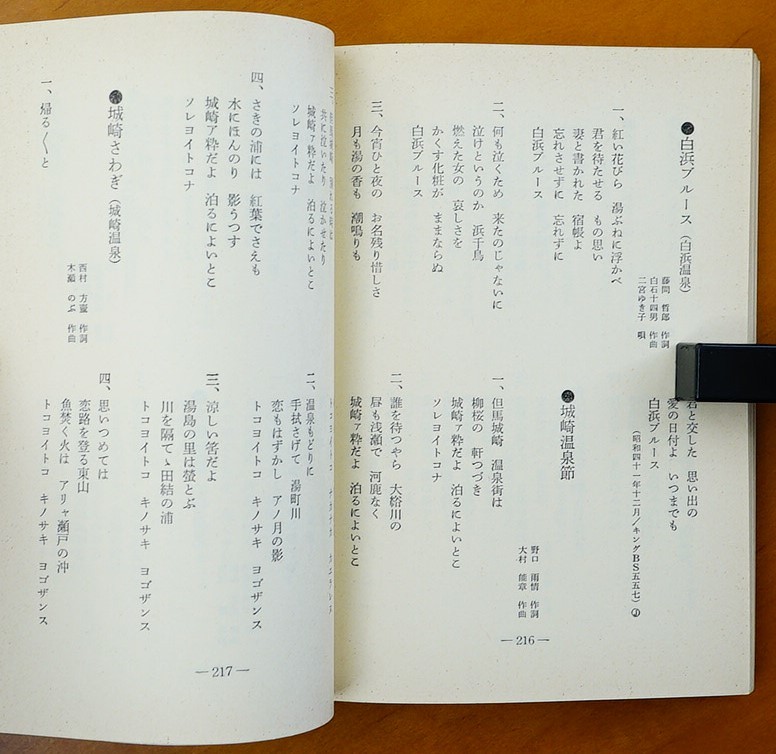 ●白浜ブルース（白浜温泉）
藤間 哲郎 作詞
白石十四男 作曲
二宮ゆき子 唄
一、紅い花びら 湯ぶねに浮かべ
君を待たせる もの思い
妻と書かれた 宿帳よ
忘れさせずに 忘れずに
白浜ブルース
二、何も泣くため 来たのじゃないに
泣けというのか 浜千鳥
燃えた女の 哀しさを
かくす化粧が ままならぬ
白浜ブルース
三、今宵ひと夜の お名残り惜しさ
月も湯の香も 潮鳴りも
君と交した 思い出の
愛の日付よ いつまでも
白浜ブルース
（昭和四十一年十二月／キングBS五五七）J
●城崎温泉節
野口 雨情 作詞
大村 能章 作曲
一、但馬城崎 温泉街は
柳桜の 軒つづき
城崎ァ粋だよ 泊るによいとこ
ソレヨイトコナ
二、誰を待つやら 大谿川の
昼も浅瀬で 河鹿なく
城崎ァ粋だよ 泊るによいとこ
―216―
共に泣いたり 泣かせたり
城崎ァ粋だよ 泊るによいとこ
ソレヨイトコナ
四、さきの浦には 紅葉でさえも
水にほんのり 影うつす
城崎ァ粋だよ 泊るによいとこ
ソレヨイトコナ
●城崎さわぎ（城崎温泉）
西村 方壷 作詞
木瀬 のぶ 作曲
一、帰る〱と
二、温泉もどりに
手拭さげて 湯町川
恋もはずかし アノ月の影
トコヨイトコ キノサキ ヨゴザンス
三、涼しい筈だよ
湯島の里は螢とぶ
川を隔てゝ田結の浦
トコヨイトコ キノサキ ヨゴザンス
四、思いつめては
恋路を登る東山
魚焚く火は アリャ瀬戸の沖
トコヨイトコ キノサキ ヨゴザンス
―217―